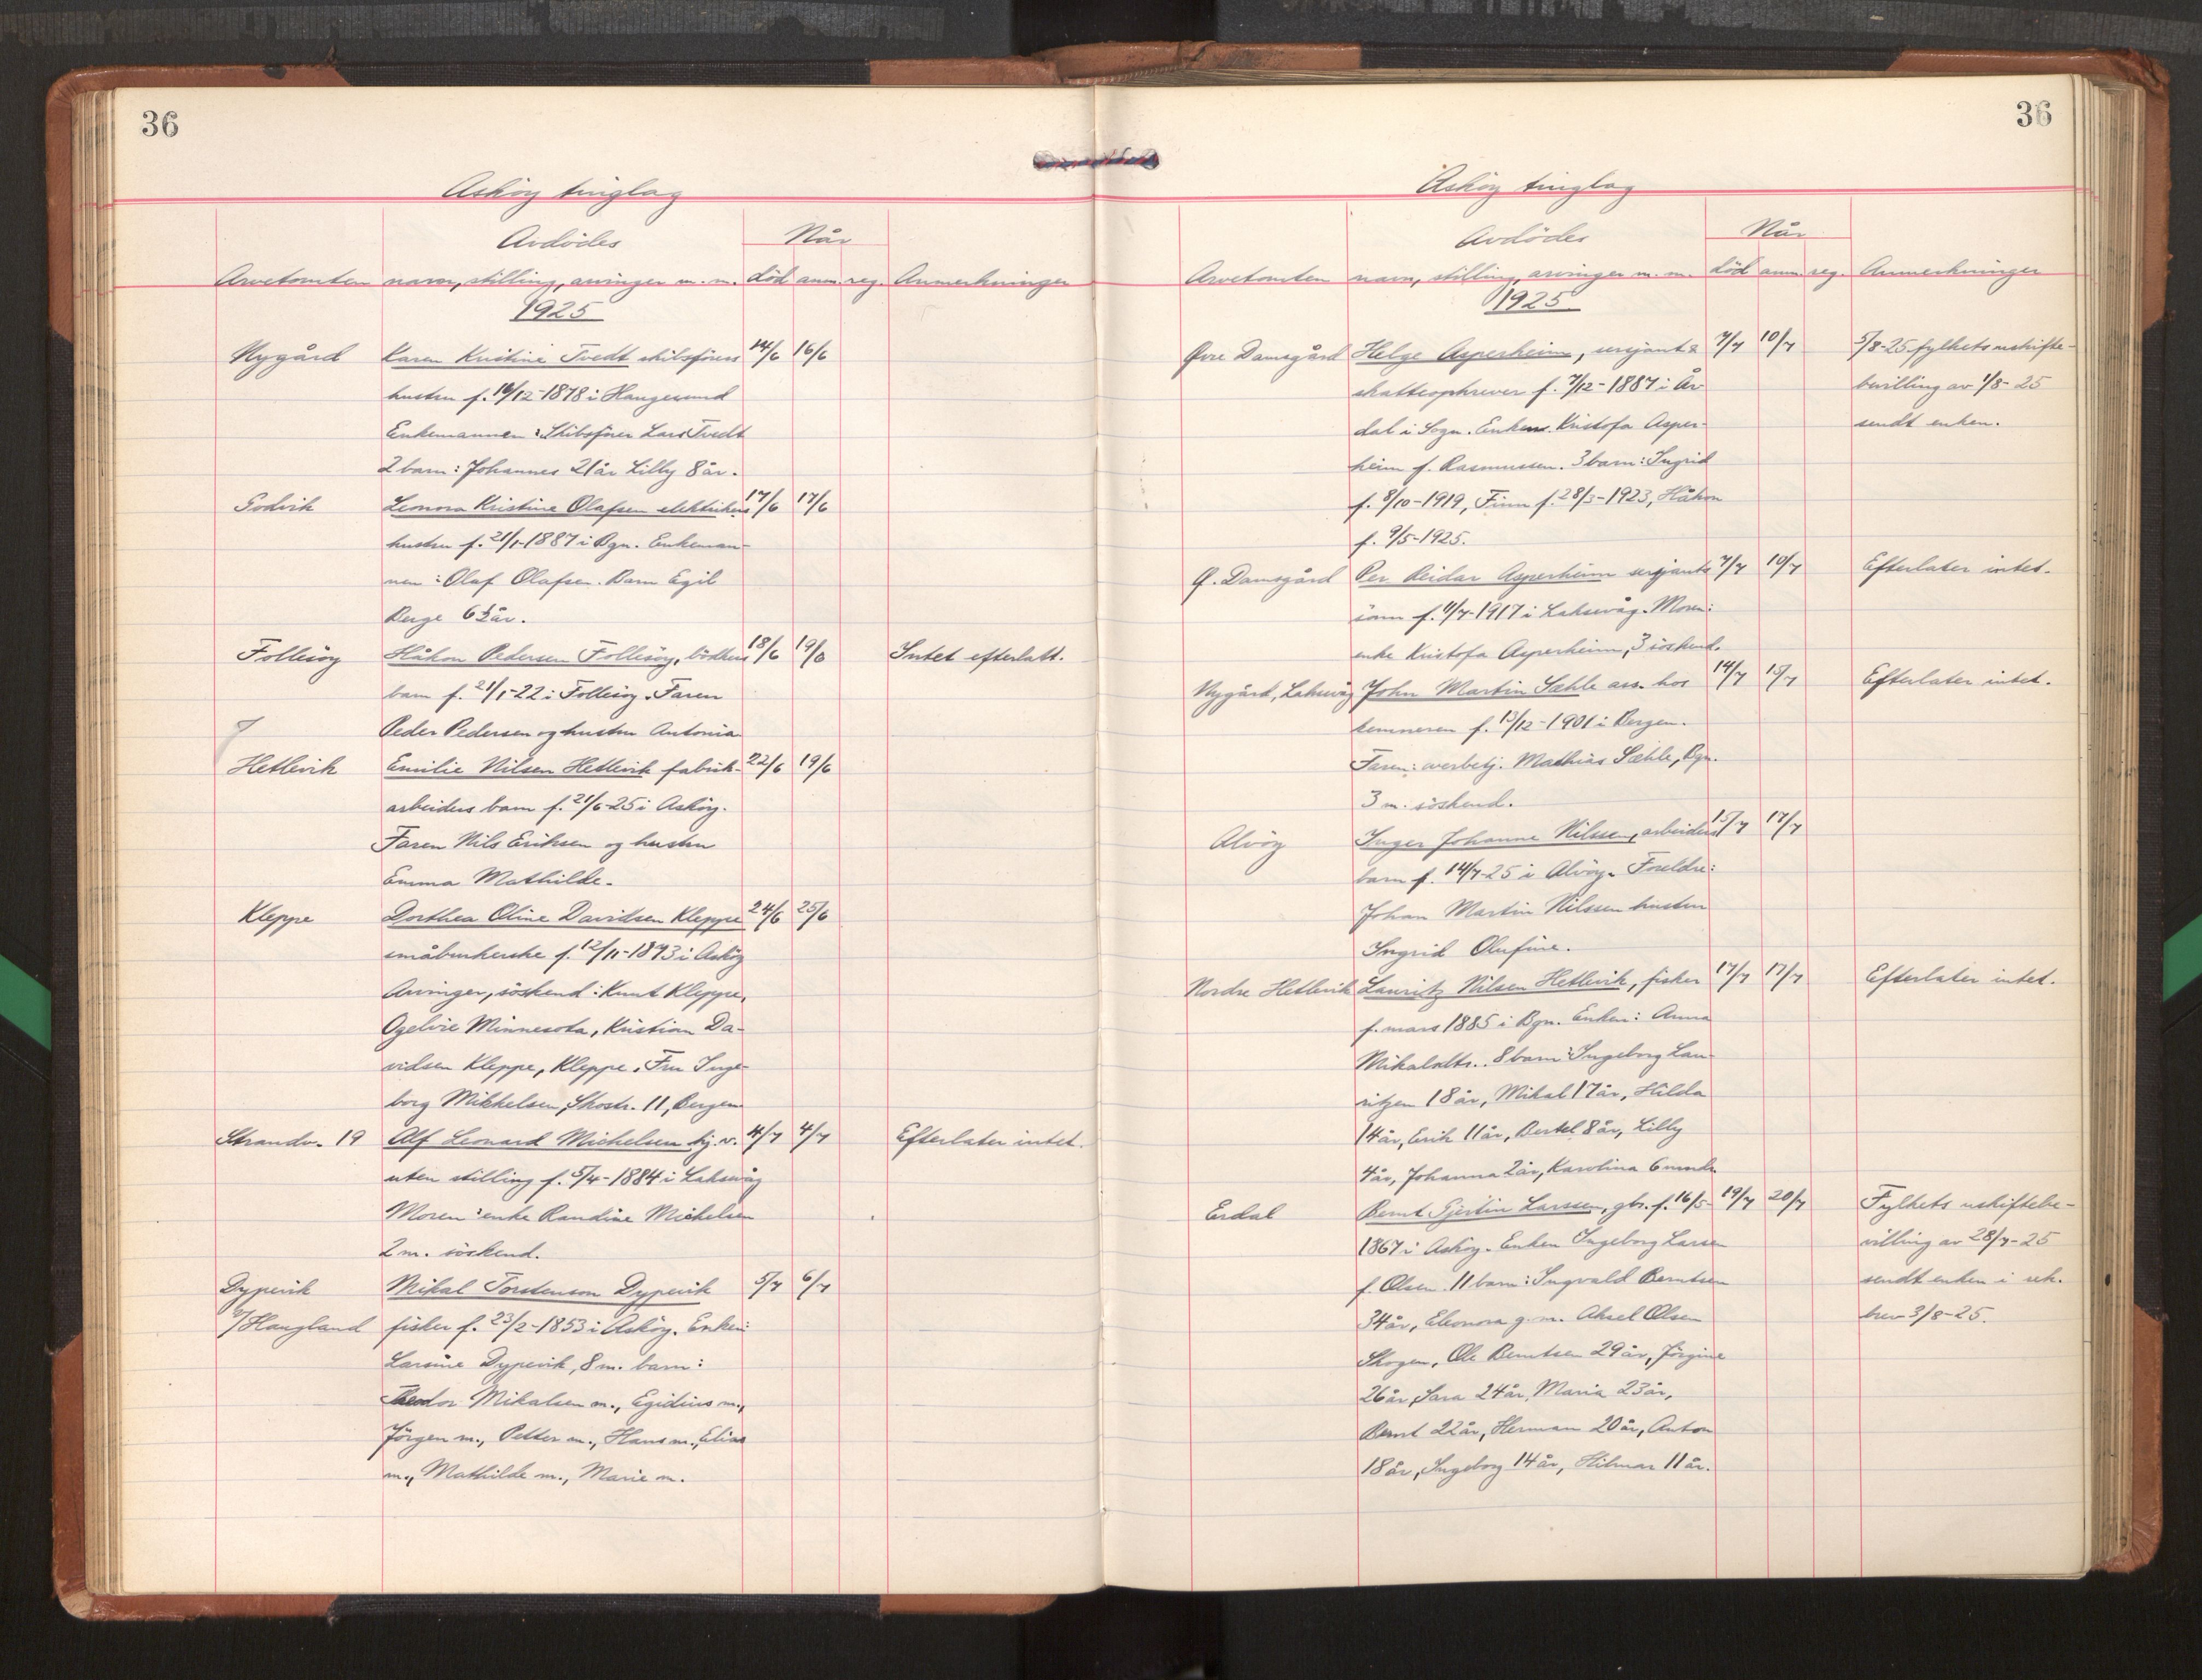 36
Asköy tinglag
Avdödes
Når
Arvetomten navn, stilling, arvinger m. m. död anm. reg. Anmerkninger
1925
Nygård Karen Kristine Tvedt skibsförers 14/6 16/6
hustru f. 16/12-1878 i Haugesund
Enkemannen: Skibsförer Lars Tvedt
2 barn: Johannes 21 år Lilly 8 år.
Godvik Leonora Kristine Olafsen elektrikers 17/6 17/6
hustru f. 21/1-1887 i Bgn. Enkeman-
nen: Olaf Olafsen. Barn Egil
Berge 6½ år.
Follesöy Håkon Pedersen Follesöy, bödkers 18/6 19/6 Intet efterlatt.
barn f. 21/1-22 i Follesöy. Faren
Peder Pedersen og hustru Antonia
Hetlevik Emilie Nilsen Hetlevik fabrik- 22/6 19/6
arbeiders barn f. 21/6-25 i Asköy.
Faren Nils Eriksen og hustru
Emma Mathilde.
Kleppe Dorthea Oline Davidsen Kleppe 24/6 25/6
småbrukerske f. 12/11-1873 i Asköy
Arvinger, söskend: Knut Kleppe,
Ogelvie Minnesota, Kristian Da-
vidsen Kleppe, Kleppe. Fru Inge-
borg Mikkelsen, Skostr. 11, Bergen
Strandv. 19 Alf Leonard Michelsen hj. v. 4/7 4/7 Efterlater intet.
uten stilling f. 5/4-1884 i Laksevåg
Moren: enke Randine Michelsen
2 m. söskend.
Dypevik Mikal Torstenson Dypevik 5/7 6/7
p/Haugland fisker f. 23/2-1853 i Asköy. Enken:
Larsine Dypevik, 8 m. barn:
Teodor Mikalsen m., Egidius m.,
Jörgen m., Petter m., Hans m., Elias
m., Mathilde m., Marie m.
36
Asköy tinglag
Avdödes
Når
Arvetomten navn, stilling, arvinger m. m. död anm. reg. Anmerkninger
1925
Övre Damsgård Helge Asperheim, sersjant & 7/7 10/7 5/8-25 fylkets uskifte-
skatteopkrever f. 7/12-1887 i År- bevilling av 1/8-25
dal i Sogn. Enken Kristofa Asper- sendt enken.
heim f. Rasmussen. 3 barn: Ingrid
f. 8/10-1919, Finn f. 28/3-1923, Håkon
f. 9/5-1925.
Ö. Damsgård Per Reidar Asperheim sersjants 7/7 10/7 Efterlater intet.
sönn f. 11/7-1917 i Laksevåg. Moren:
enke Kristofa Asperheim, 3 söskend.
Nygård, Laksevåg John Martin Sæhle ass. hos 14/7 15/7 Efterlater intet.
kemneren f. 13/12-1901 i Bergen.
Faren: overbetj. Mathias Sæhle, Bgn.
3 m. söskend.
Alvöy Inger Johanne Nilssen, arbeiders 15/7 17/7
barn f. 14/7-25 i Alvöy. Foreldre:
Johan Martin Nilssen hustru
Ingrid Olufine.
Nordre Hetlevik Lauritz Nilsen Hetlevik, fisker 17/7 17/7 Efterlater intet.
f. mars 1885 i Bgn. Enken: Anna
Mikalsdtr.. 8 barn: Ingeborg Lau-
ritzen 18 år, Mikal 17 år, Hilda
14 år, Erik 11 år, Bertel 8 år, Lilly
4 år, Johanna 2 år, Karolina 6 mndr.
Erdal Bernt Gjertin Larssen, gbr. f. 16/5- 19/7 20/7 Fylkets uskiftebe-
1867 i Asköy. Enken Ingeborg Larsen villing av 28/7-25
f. Olsen. 11 barn: Ingvald Berntsen sendt enken i rek.
34 år, Eleonora g. m. Aksel Olsen brev 3/8-25.
Skogen, Ole Berntsen 29 år, Jörgine
26 år, Sara 24 år, Maria 23 år,
Bernt 22 år, Herman 20 år, Anton
18 år, Ingeborg 14 år, Hilmar 11 år.